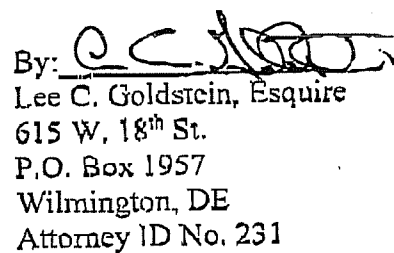 By:
Lee C. Goldstein, Esquire
615 W. 18th St.
P.O. Box 1957
Wilmington, DE
Attorney ID No. 231